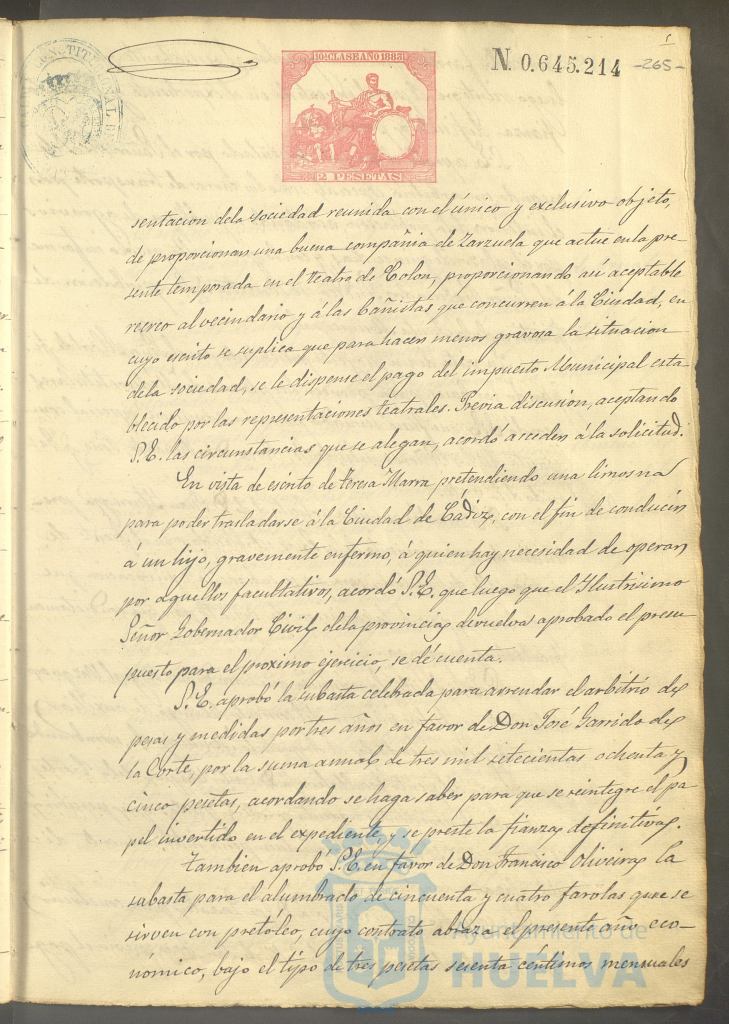 10ª CLASE AÑO 1883
N. 0.645.214
-265-
2 PESETAS
sentacion dela sociedad reunida con el único y exclusivo objeto,
de proporcionar una buena compañia de Zarzuela que actue en la pre-
sente temporada en el teatro de Colon, proporcionando asi aceptable
recreo al vecindario y á las Bañistas que concurren á la Ciudad, en
cuyo escrito se suplica que para hacer menos gravosa la situacion
dela sociedad, se le dispense el pago del impuesto Municipal esta-
blecido por las representaciones teatrales. Previa discusion, aceptando
S.E. las circunstancias que se alegan, acordó acceder á la solicitud.
En vista de escrito de Teresa Marra pretendiendo una limosna
para poder trasladarse á la Ciudad de Cádiz, con el fin de conducir
á un hijo, gravemente enfermo, á quien hay necesidad de operar
por aquellos facultativos, acordó S.E. que luego que el Ilustrisimo
Señor Gobernador Civil dela provincia devuelva aprobado el presu-
puesto para el proximo ejercicio, se dé cuenta.
S.E. aprobó la subasta celebrada para arrendar el arbitrio de
pesas y medidas por tres años en favor de Don José Garrido de
la Corte, por la suma annual de tres mil setecientas ochenta y
cinco pesetas, acordando se haga saber para que se reintegre el pa
pel invertido en el expediente, y se preste la fianza definitiva.
Tambien aprobó S.E. en favor de Don Francisco Oliveira la
subasta para el alumbrado de cincuenta y cuatro farolas que se
sirven con pretóleo, cuyo contrato abraza el presente año eco-
nómico, bajo el tipo de tres pesetas sesenta céntimos mensuales
Ayuntamiento de
HUELVA